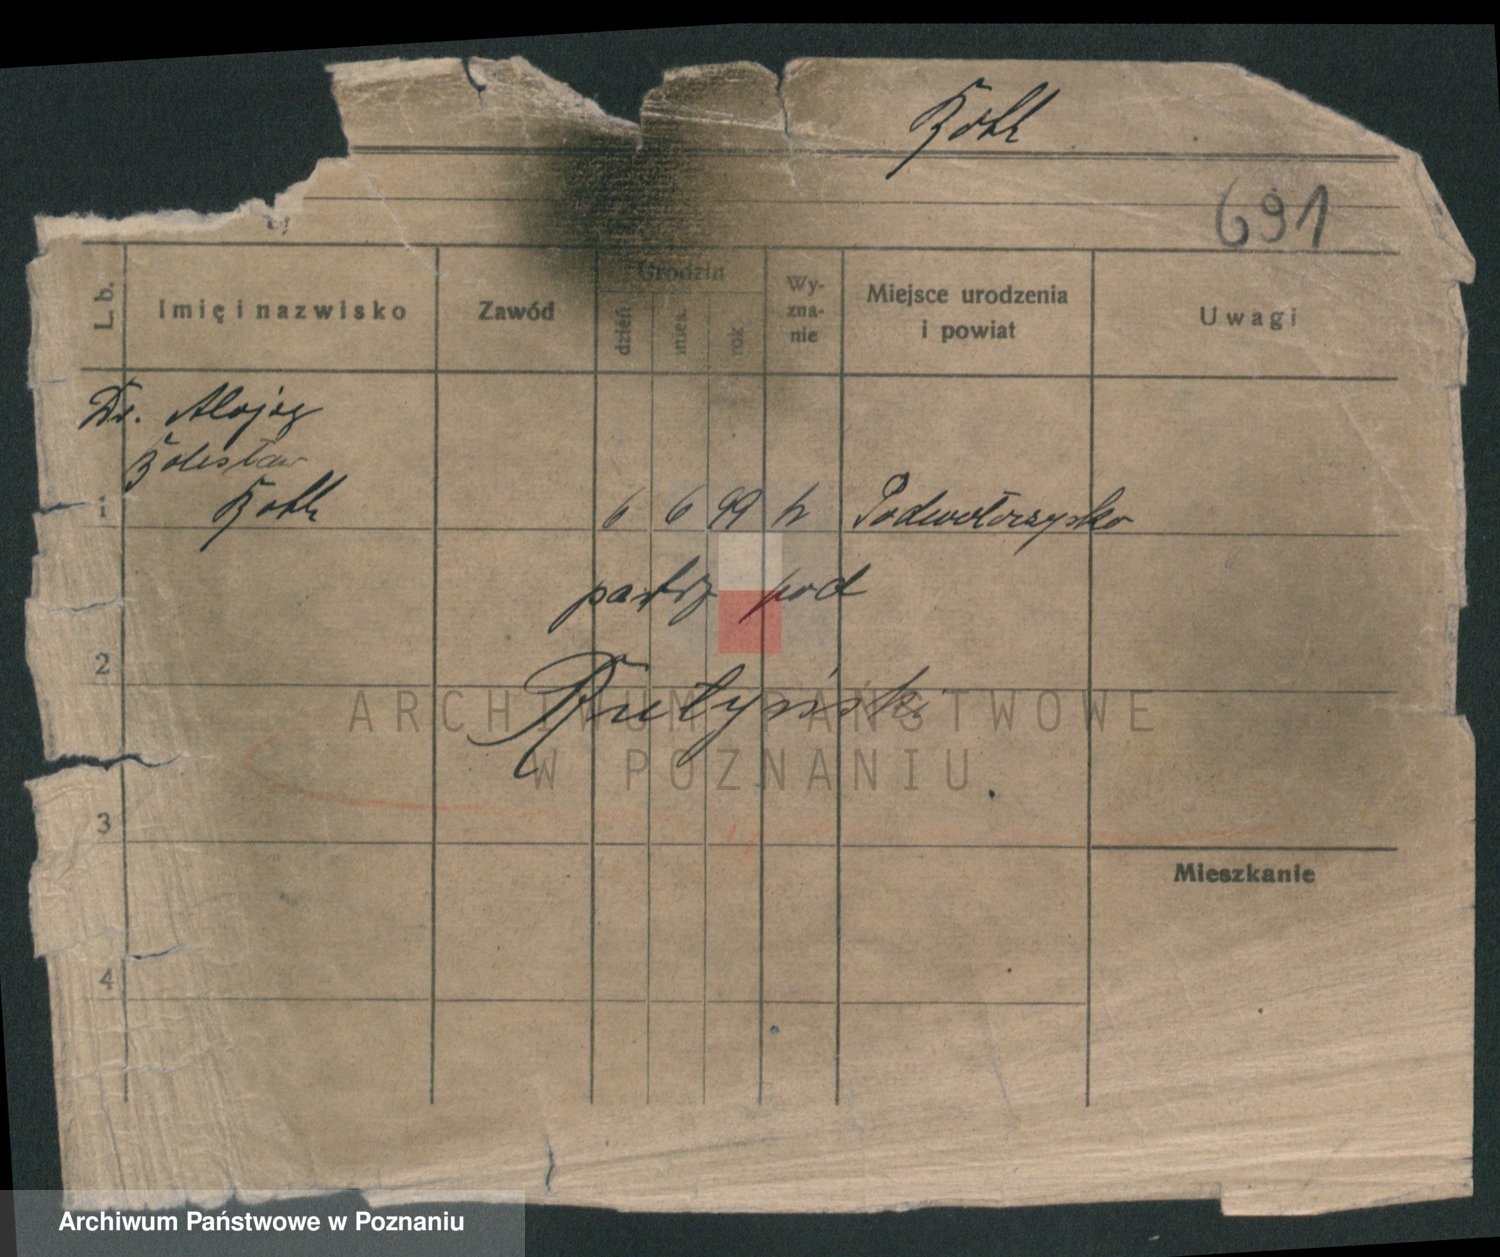 Kohl
691
L. b.
Imię i nazwisko
Zawód
Urodzin
dzień
mies.
rok
Wy-
zna-
nie
Miejsce urodzenia
i powiat
Uwagi
Dr. Alojzy
Bolesław
1 Kohl 6 6 99 k Podwołoczysko
patrz pod
2
Rutyński
3
Mieszkanie
4
ARCHIWUM PAŃSTWOWE
W POZNANIU
Archiwum Państwowe w Poznaniu